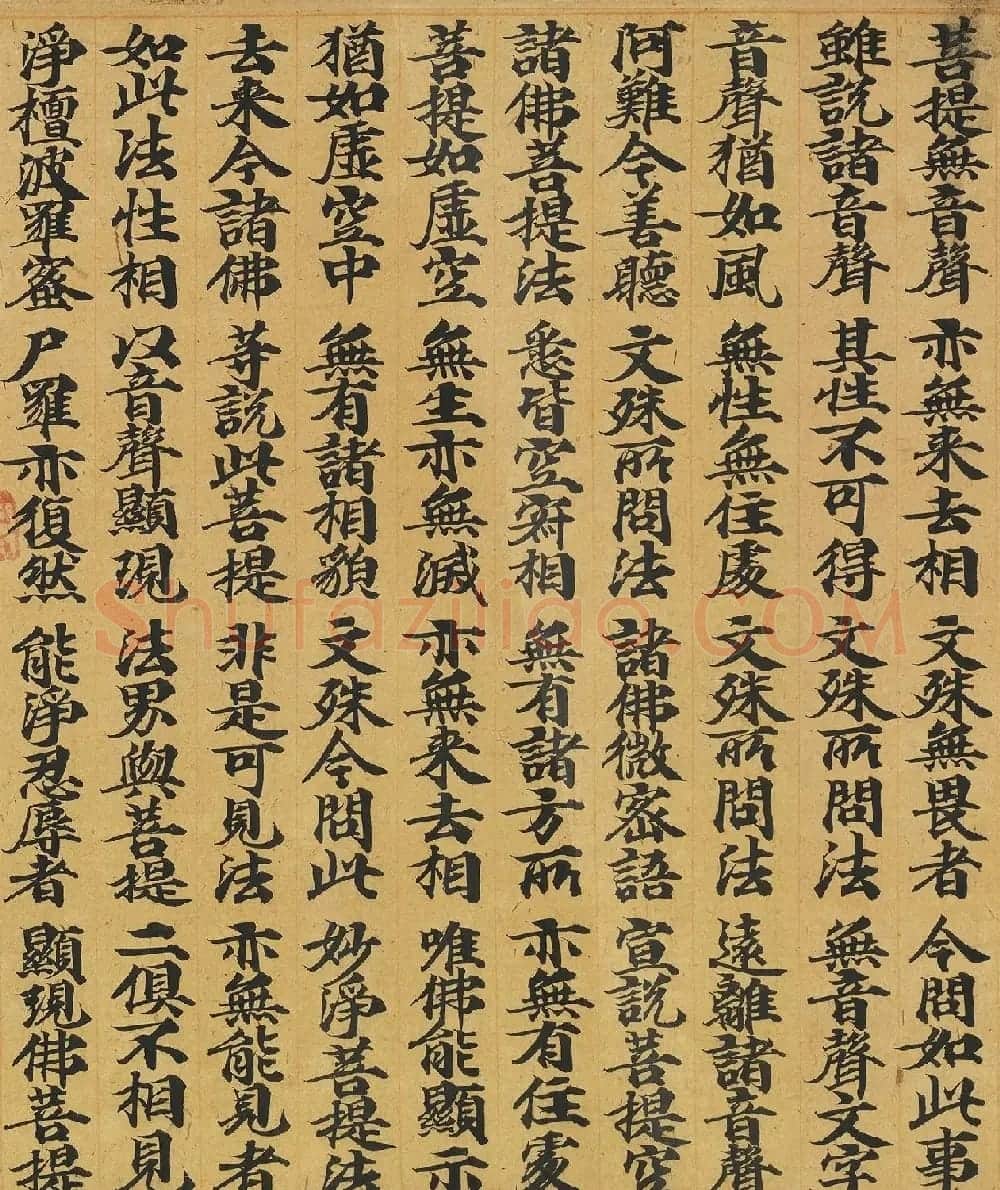 菩提無音聲 亦無来去相 文殊無畏者 今問如此事
雖説諸音聲 其性不可得 文殊所問法 無音聲文字
音聲猶如風 無性無住處 文殊所問法 遠離諸音聲
阿難今善聽 文殊所問法 諸佛微密語 宣説菩提空
諸佛菩提法 悉皆空寂相 無有諸方所 亦無有住處
菩提如虚空 無生亦無滅 亦無来去相 唯佛能顯示
猶如虚空中 無有諸相貌 文殊今問此 妙淨菩提法
去来今諸佛 等説此菩提 非是可見法 亦無能見者
如此法性相 以音聲顯現 法界與菩提 二俱不相見
淨檀波羅蜜 尸羅亦復然 能淨忍辱者 顯現佛菩提
Shufaziliao.COM